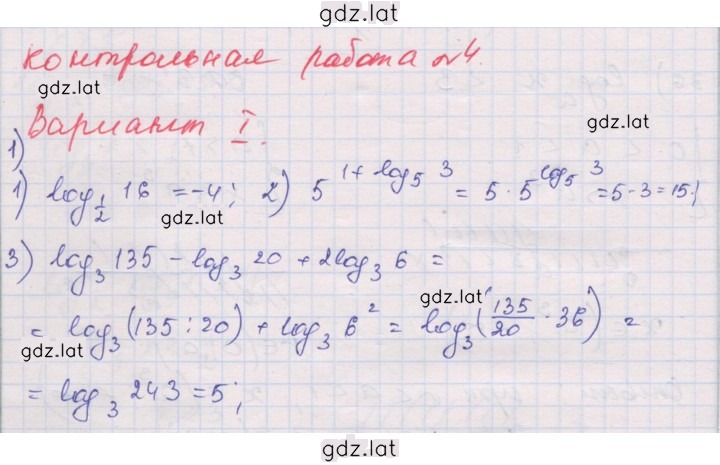 gdz.lat
Контрольная работа №4.
gdz.lat
Вариант I.
gdz.lat
1)
1) log_{1/2} 16 = -4; 2) 5^{1+log_5 3} = 5·5^{log_5 3} = 5·3 = 15;
gdz.lat
3) log_3 135 - log_3 20 + 2log_3 6 =
gdz.lat
= log_3 (135 : 20) + log_3 6^2 = log_3 (135/20 · 36) =
gdz.lat
= log_3 243 = 5;
gdz.lat